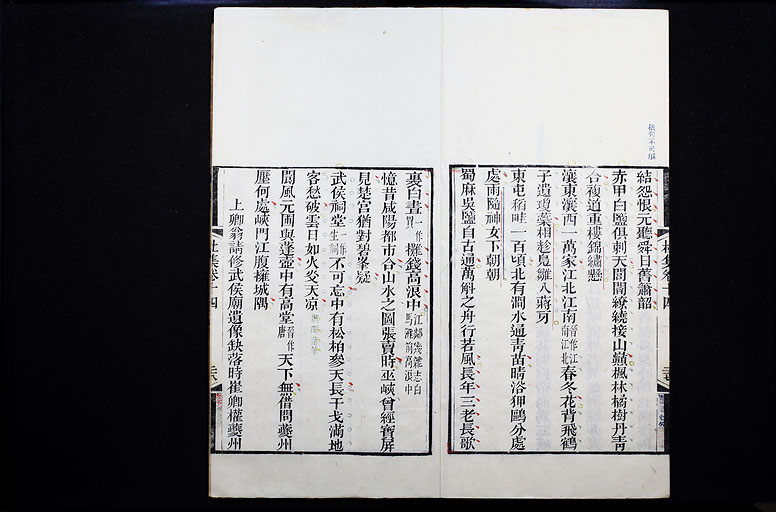 結怨恨元聽舜日舊簫韶
赤甲白鹽俱刺天閭閻繚繞接山巔楓林橘樹丹青
合複道重樓錦繡懸
瀼東瀼西一萬家江北江南春冬花背飛鶴
子遺瓊蘂相趁鳧雛入蔣牙
東屯稻畦一百頃北有澗水通青苗晴浴狎鷗分處
處雨隨神女下朝朝
蜀麻吳鹽自古通萬斛之舟行若風長年三老長歌
裏白晝攤錢高浪中
憶昔咸陽都市合山水之圖張賣時巫峽曾經寶屏
見楚宮猶對碧峯疑
武侯祠堂不可忘中有松柏參天長干戈滿地
客愁破雲日如火炎天凉
閬風元圃與蓬壺中有高堂天下無借問夔州
壓何處峽門江腹擁城隅
上卿翁請修武侯廟遺像缺落時崔卿權夔州
杜集卷十四